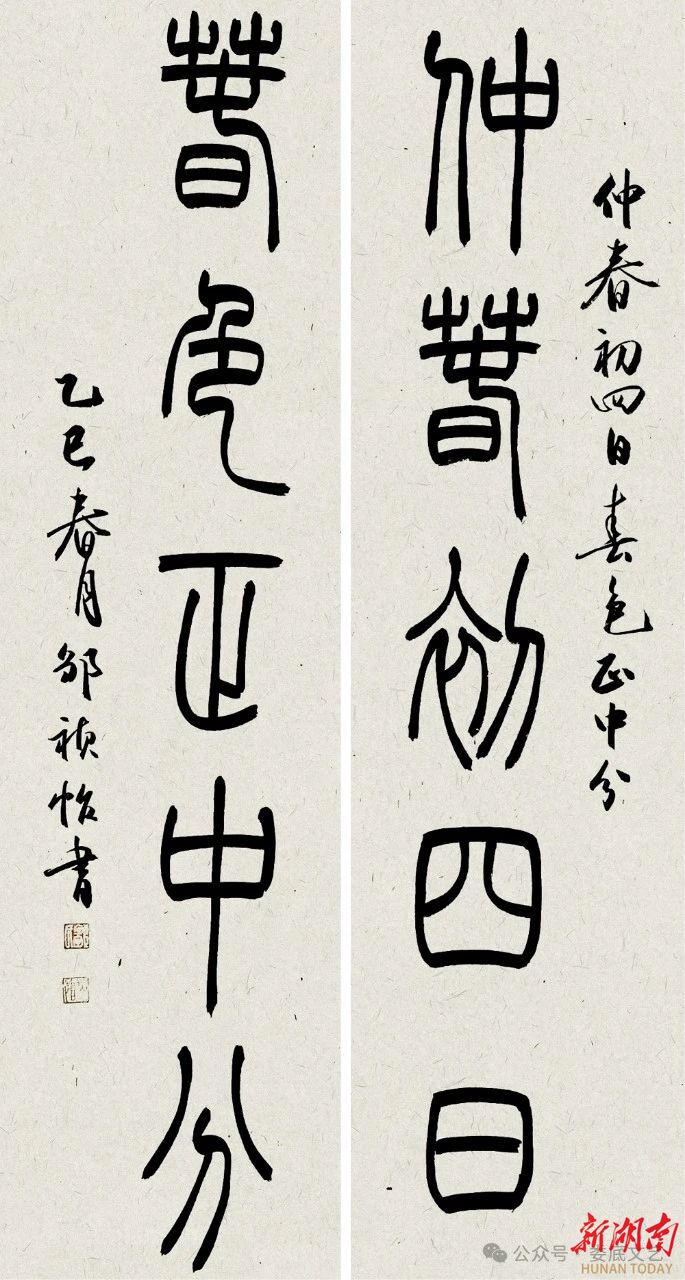 仲春初四日春色正中分
仲春初四日
春色正中分
乙巳春月邹祯怡书
公众号·娄底文艺
新湖南
HUNAN TODAY